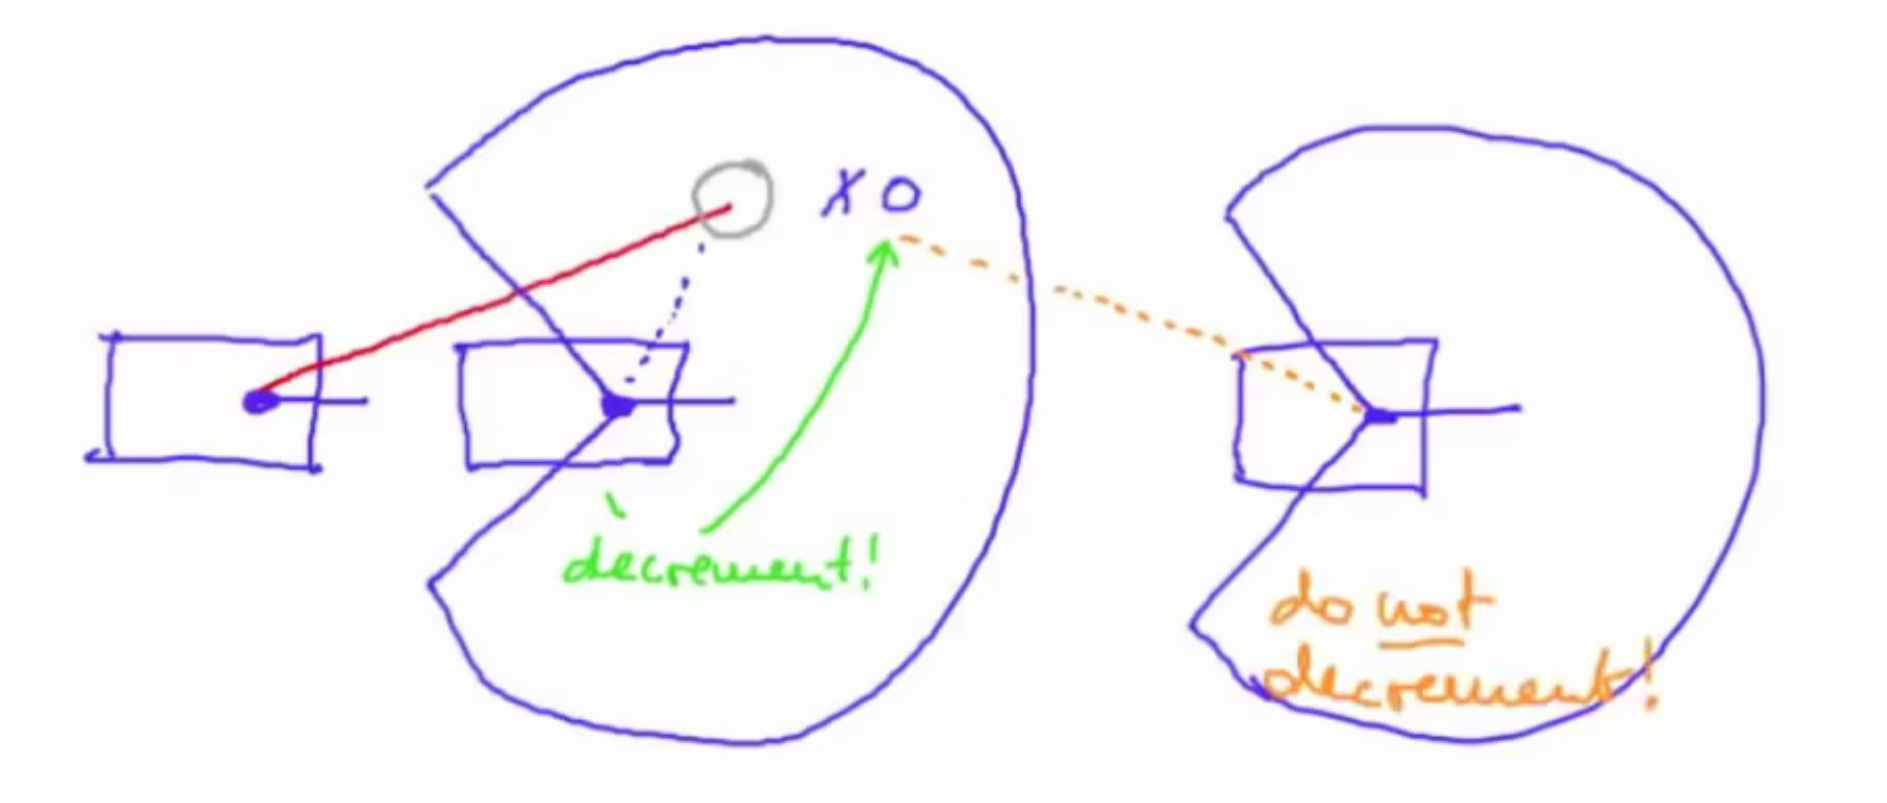 X O
decrement!
do not
decrement!